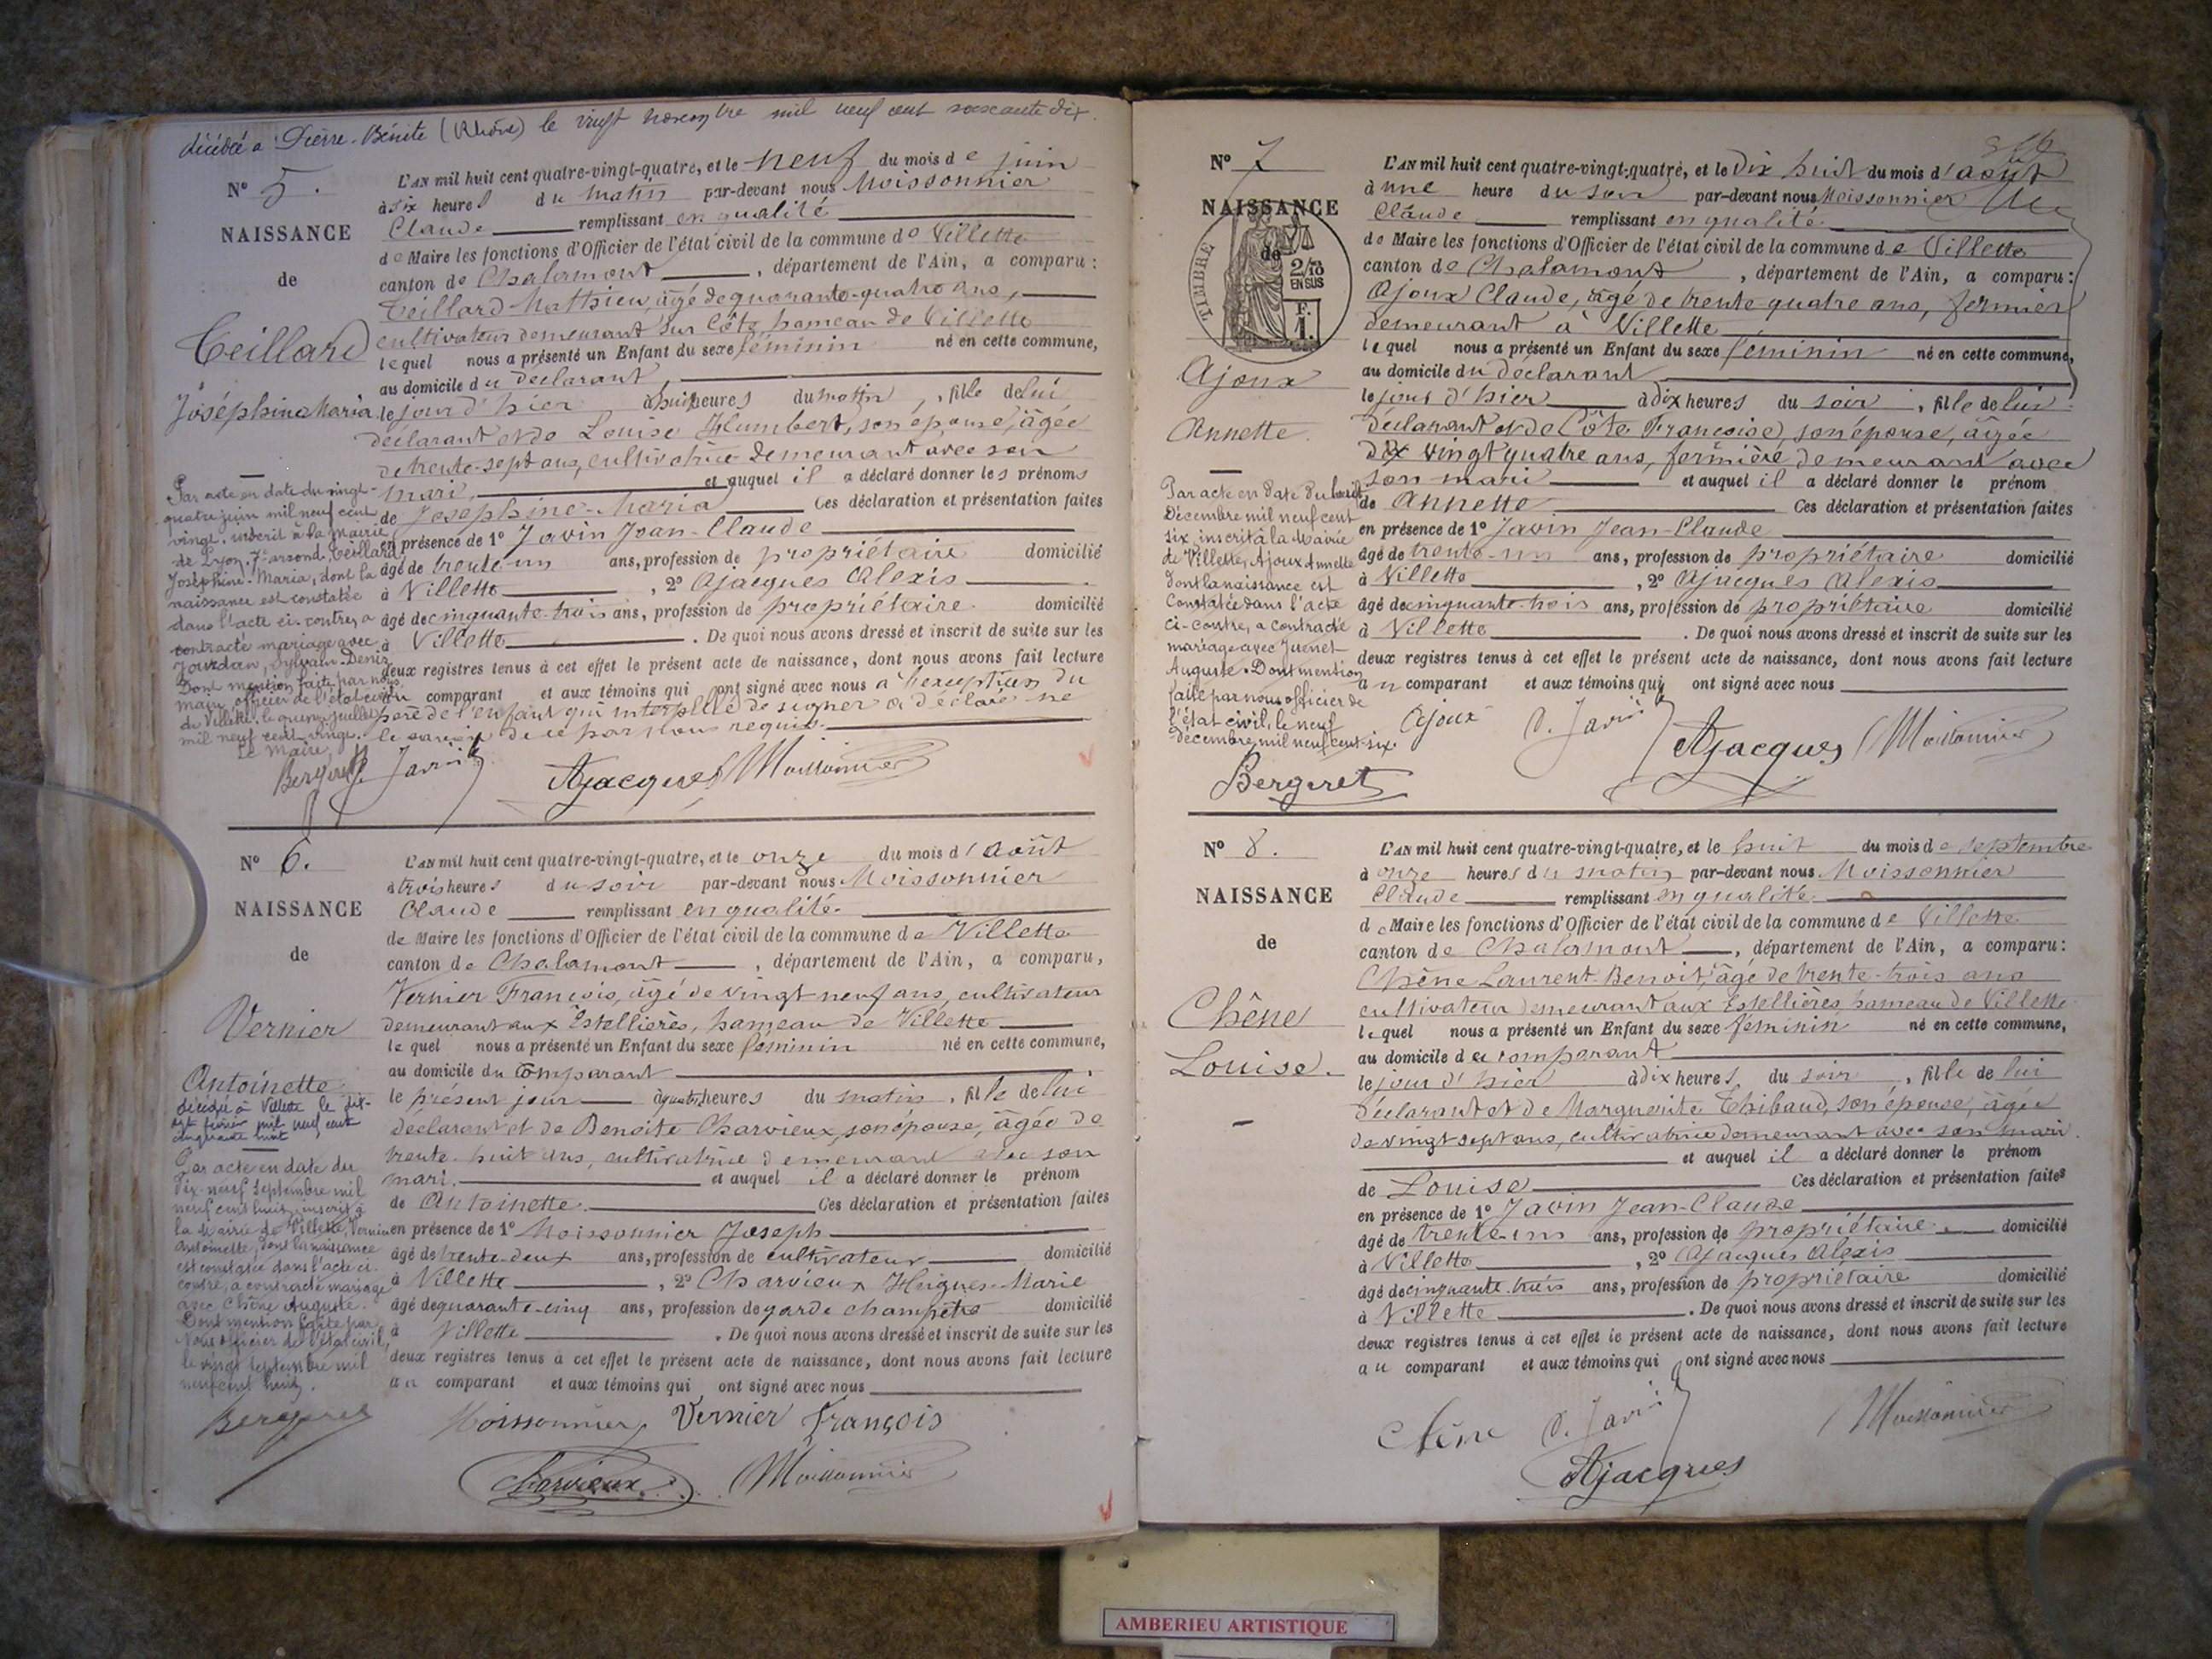 décédée à Pierre-Bénite (Rhône) le vingt novembre mil neuf cent soixante dix.
N° 5.
NAISSANCE
de
Teillard
Joséphine Maria
Par acte en date du vingt-
quatre juin mil neuf cent
vingt, inscrit à la mairie
de Lyon, 7e arrond. Teillard
Joséphine-Maria, dont la
naissance est constatée
dans l'acte ci-contre, a
contracté mariage avec
Jourdan, Sylvain-Denis
Dont mention faite par nous
maire, officier de l'état civil
de Villette, le quinze juillet
mil neuf cent vingt.
Le Maire,
L'AN mil huit cent quatre-vingt-quatre, et le neuf du mois de juin
à six heures du matin par-devant nous Moissonnier
Claude remplissant en qualité
de Maire les fonctions d'Officier de l'état civil de la commune de Villette
canton de Chalamont, département de l'Ain, a comparu :
Teillard Mathieu, âgé de quarante-quatre ans,
cultivateur demeurant sur Côte, hameau de Villette
lequel nous a présenté un Enfant du sexe féminin né en cette commune,
au domicile du déclarant,
le jour d'hier à huit heures du matin, fille de lui
déclarant et de Louise Humbert, son épouse, âgée
de trente-sept ans, cultivatrice demeurant avec son
mari, et auquel il a déclaré donner les prénoms
de Joséphine-Maria Ces déclaration et présentation faites
en présence de 1° Javin Jean-Claude
âgé de trente-un ans, profession de propriétaire domicilié
à Villette, 2° Ajacques Alexis
âgé de cinquante-trois ans, profession de propriétaire domicilié
à Villette. De quoi nous avons dressé et inscrit de suite sur les
deux registres tenus à cet effet le présent acte de naissance, dont nous avons fait lecture
au comparant et aux témoins qui ont signé avec nous à l'exception du
père de l'enfant qui interpellé de signer a déclaré ne
le savoir de ce par nous requis.
Bergeret Javin Ajacques Moissonnier
N° 6.
NAISSANCE
de
Vernier
Antoinette
décédée à Villette le dix-
sept février mil neuf cent
cinquante huit
Par acte en date du
dix-neuf Septembre mil
neuf cent huit, inscrit à
la Mairie de Villette, Vernier
Antoinette, dont la naissance
est constatée dans l'acte ci-
contre, a contracté mariage
avec Chêne Auguste.
Dont mention faite par
Nous officier de l'état civil,
le vingt Septembre mil
neuf cent huit.
Bergeret
L'AN mil huit cent quatre-vingt-quatre, et le onze du mois d'août
à trois heures du soir par-devant nous Moissonnier
Claude remplissant en qualité
de Maire les fonctions d'Officier de l'état civil de la commune de Villette
canton de Chalamont, département de l'Ain, a comparu,
Vernier François, âgé de vingt-neuf ans, cultivateur
demeurant aux Estellières, hameau de Villette
lequel nous a présenté un Enfant du sexe féminin né en cette commune,
au domicile du comparant
le présent jour à quatre heures du matin, fille de lui
déclarant et de Benoite Charvieux, son épouse, âgée de
trente-huit ans, cultivatrice demeurant avec son
mari. et auquel il a déclaré donner le prénom
de Antoinette. Ces déclaration et présentation faites
en présence de 1° Moissonnier Joseph
âgé de trente-deux ans, profession de cultivateur domicilié
à Villette, 2° Charvieux Hugues-Marie
âgé de quarante-cinq ans, profession de garde champêtre domicilié
à Villette. De quoi nous avons dressé et inscrit de suite sur les
deux registres tenus à cet effet le présent acte de naissance, dont nous avons fait lecture
au comparant et aux témoins qui ont signé avec nous
Moissonnier Vernier François
Charvieux Moissonnier
N° 7
NAISSANCE
de
TIMBRE
2/10
EN SUS
F.
1.
Ajoux
Annette.
Par acte en date du huit
Décembre mil neuf cent
six, inscrit à la Mairie
de Villette, Ajoux Annette
dont la naissance est
Constatée dans l'acte
ci-contre, a contracté
mariage avec Juenet
Auguste. Dont mention
faite par nous officier de
l'état civil, le neuf
Décembre mil neuf cent six.
Bergeret
L'AN mil huit cent quatre-vingt-quatre, et le Dix huit du mois d'août
à une heure du soir par-devant nous Moissonnier
Claude remplissant en qualité
de Maire les fonctions d'Officier de l'état civil de la commune de Villette
canton de Chalamont, département de l'Ain, a comparu :
Ajoux Claude, âgé de trente-quatre ans, fermier
demeurant à Villette
lequel nous a présenté un Enfant du sexe féminin né en cette commune,
au domicile du déclarant
le jour d'hier à dix heures du soir, fille de lui
déclarant et de Côte Françoise, son épouse, âgée
de vingt quatre ans, fermière demeurant avec
son mari et auquel il a déclaré donner le prénom
de Annette Ces déclaration et présentation faites
en présence de 1° Javin Jean-Claude
âgé de trente-un ans, profession de propriétaire domicilié
à Villette, 2° Ajacques Alexis
âgé de cinquante-trois ans, profession de propriétaire domicilié
à Villette. De quoi nous avons dressé et inscrit de suite sur les
deux registres tenus à cet effet le présent acte de naissance, dont nous avons fait lecture
au comparant et aux témoins qui ont signé avec nous
Ajoux C. Javin Ajacques Moissonnier
N° 8.
NAISSANCE
de
Chêne
Louise.
L'AN mil huit cent quatre-vingt-quatre, et le huit du mois de septembre
à onze heures du matin par-devant nous Moissonnier
Claude remplissant en qualité
de Maire les fonctions d'Officier de l'état civil de la commune de Villette
canton de Chalamont, département de l'Ain, a comparu :
Chêne Laurent-Benoit, âgé de trente-trois ans
cultivateur demeurant aux Estellières hameau de Villette
lequel nous a présenté un Enfant du sexe féminin né en cette commune,
au domicile du comparant
le jour d'hier à dix heures du soir, fille de lui
déclarant et de Marguerite Thibaud, son épouse, âgée
de vingt sept ans, cultivatrice demeurant avec son mari.
et auquel il a déclaré donner le prénom
de Louise Ces déclaration et présentation faites
en présence de 1° Javin Jean-Claude
âgé de trente-un ans, profession de propriétaire domicilié
à Villette, 2° Ajacques Alexis
âgé de cinquante-trois ans, profession de propriétaire domicilié
à Villette. De quoi nous avons dressé et inscrit de suite sur les
deux registres tenus à cet effet le présent acte de naissance, dont nous avons fait lecture
au comparant et aux témoins qui ont signé avec nous
Chêne C. Javin Moissonnier
Ajacques
AMBERIEU ARTISTIQUE